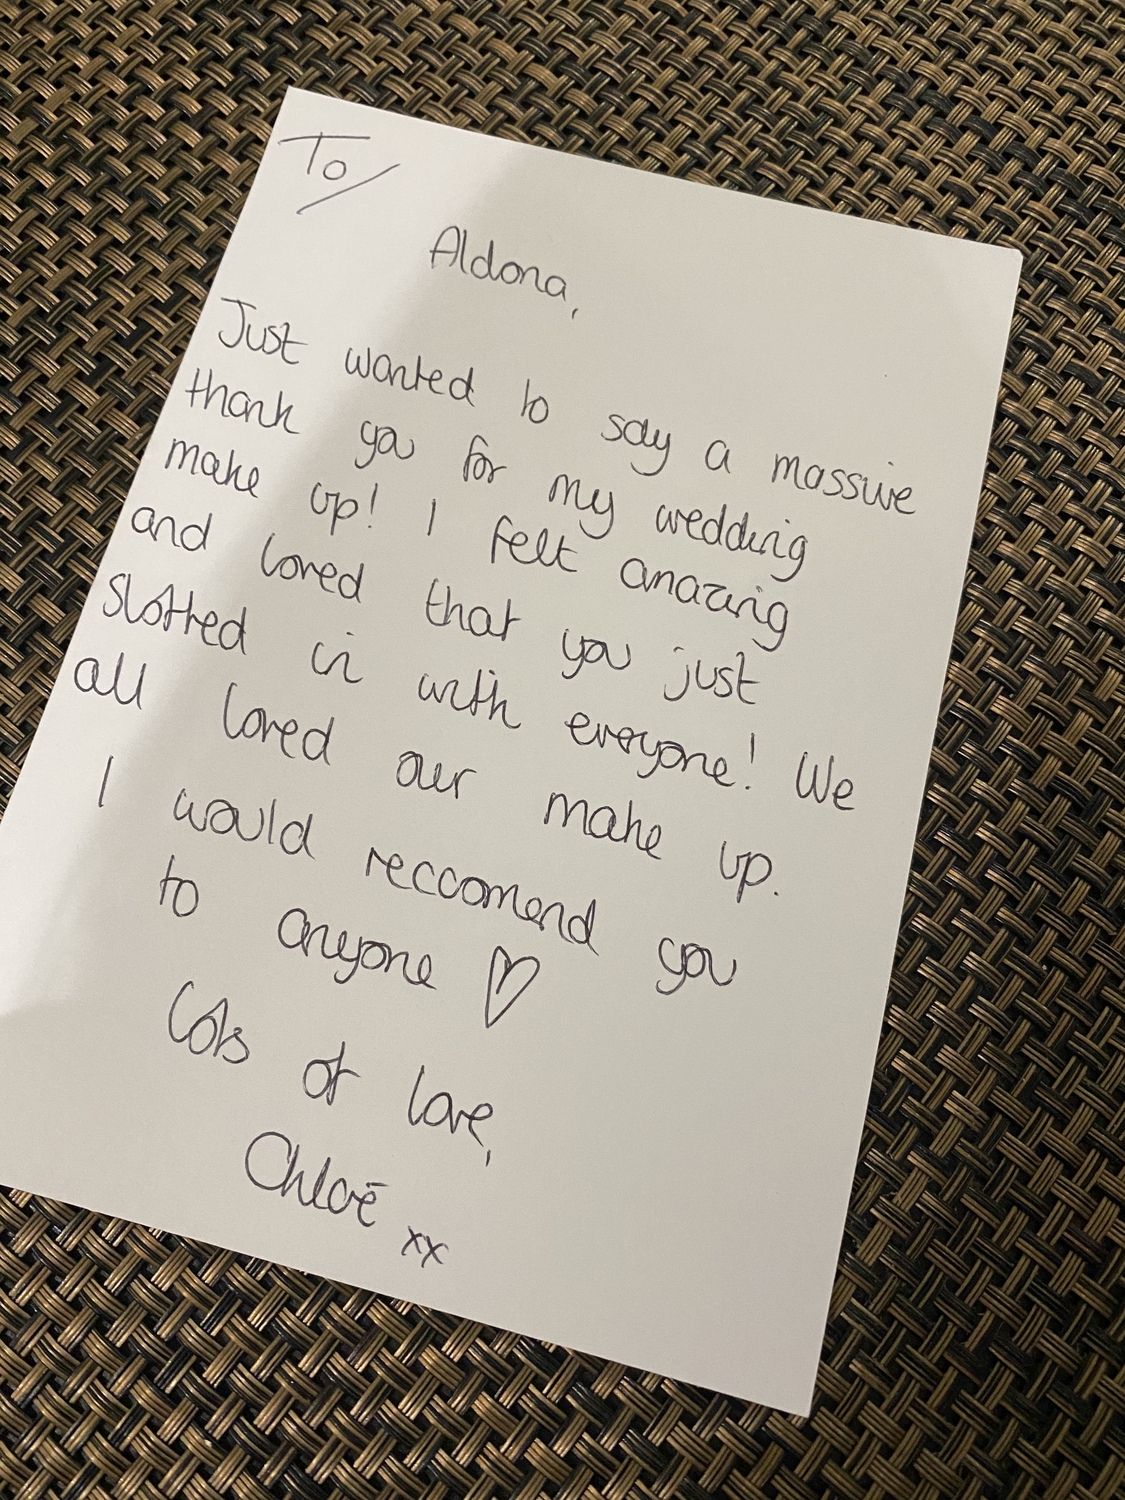 To/
Aldona,
Just wanted to say a massive
thank you for my wedding
make up! I felt amazing
and loved that you just
slotted in with everyone! We
all loved our make up.
I would reccomend you
to anyone ♡
Lots of love,
Chloē xx